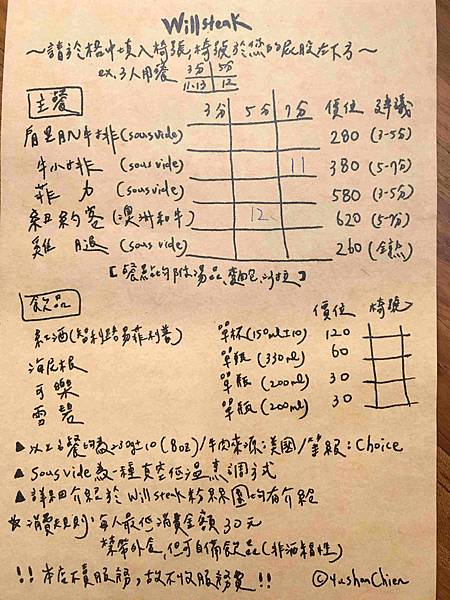 Willsteak
～請於格中填入椅號,椅號於您的屁股右下方～
ex. 3人用餐 3分 5分
11.13 12
主餐 3分 5分 7分 價位 建議
肩里肌牛排(sous vide) 280 (3-5分)
牛小排 (sous vide) 11 380 (5-7分)
菲力 (sous vide) 580 (3-5分)
紐約客 (澳洲和牛) 12 620 (5-7分)
雞腿 (sous vide) 260 (全熟)
[餐點均附湯品、麵包、沙拉]
飲品 價位 椅號
紅酒(智利路易菲利普) 單杯(150ml±10) 120
海尼根 單瓶 (330ml) 60
可樂 單瓶 (200ml) 30
雪碧 單瓶 (200ml) 30
▲以上主餐均為230g±10 (8oz)/牛肉來源:美國/等級:Choice
▲Sous vide為一種真空低溫烹調方式
▲詳細介紹於Willsteak粉絲團均有介紹
☆消費規則:每人最低消費金額30元
禁帶外食,但可自備飲品(非酒精性)
!!本店不賣服務,故不收服務費!! ©YushanChien